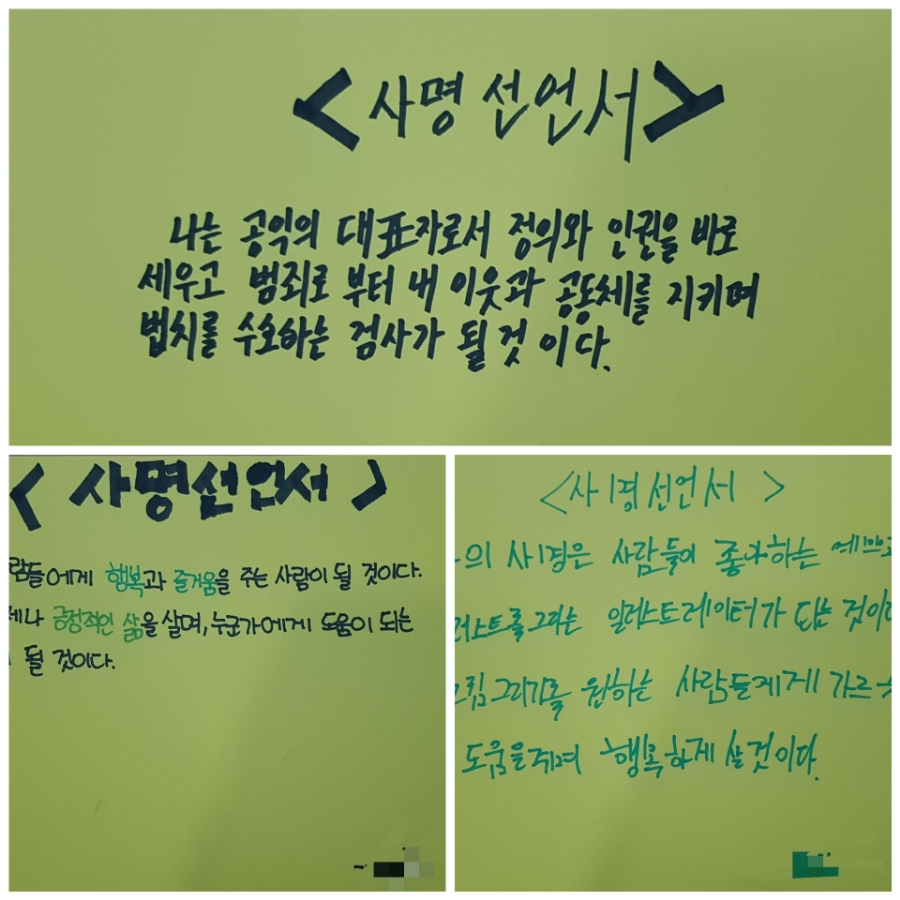 <사명선언서>
나는 공익의 대표자로서 정의와 인권을 바로
세우고 범죄로 부터 내 이웃과 공동체를 지키며
법치를 수호하는 검사가 될 것 이다.
<사명선언서>
람들에게 행복과 즐거움을 주는 사람이 될 것이다.
제나 긍정적인 삶을 살며, 누군가에게 도움이 되는
될 것이다.
<사명선언서>
의 사명은 사람들이 좋아하는
러스트를 그리는 일러스트레이터가 되는 것이다
그림그리기를 원하는 사람들에게 가르
도움을주며 행복하게 살것이다.